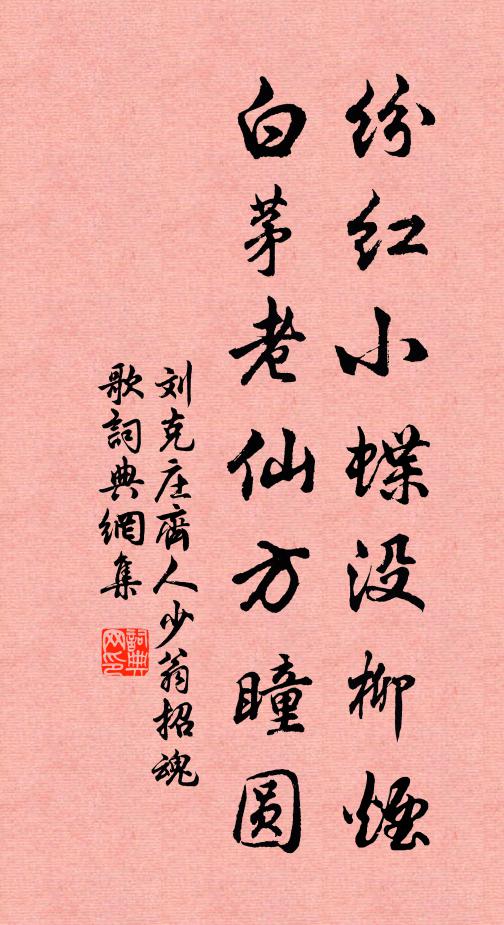 纷红小蝶没柳烟
白茅老仙方瞳圆
刘克庄齊人少翁招魂
歌詞典網集
詞典网印